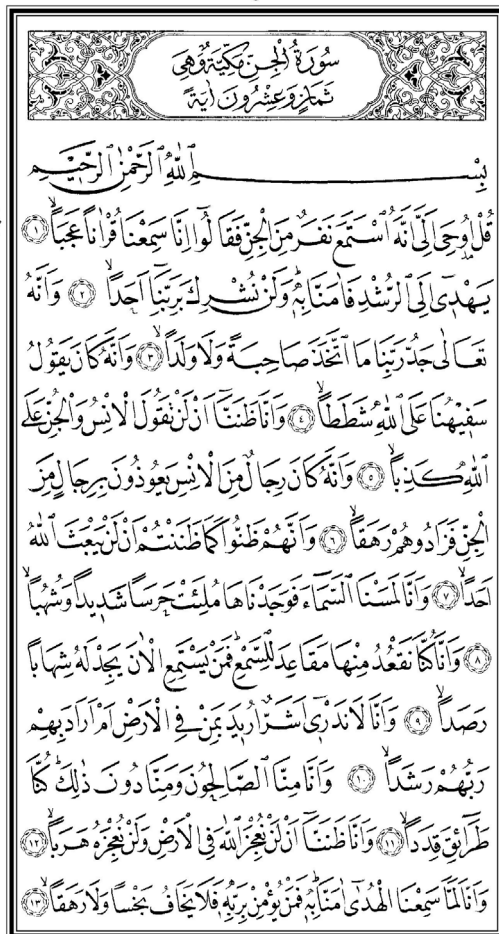 سُورَةُ الْجِنِّ مَكِّيَّةٌ وَهِىَ
ثَمَانٍ وَعِشْرُونَ اٰيَةً
بِسْمِ اللّٰهِ الرَّحْمٰنِ الرَّحِيمِ
قُلْ اُو۫حِىَ اِلَىَّ اَنَّهُ اسْتَمَعَ نَفَرٌ مِنَ الْجِنِّ فَقَالُٓوا اِنَّا سَمِعْنَا قُرْاٰناً عَجَباًۙ ﴿١﴾
يَهْدٖٓى اِلَى الرُّشْدِ فَاٰمَنَّا بِهٖؕ وَلَنْ نُشْرِكَ بِرَبِّنَٓا اَحَداًۙ ﴿٢﴾ وَاَنَّهُ
تَعَالٰى جَدُّ رَبِّنَا مَا اتَّخَذَ صَاحِبَةً وَلَا وَلَداًۙ ﴿٣﴾ وَاَنَّهُ كَانَ يَقُولُ
سَفٖيهُنَا عَلَى اللّٰهِ شَطَطاًۙ ﴿٤﴾ وَاَنَّا ظَنَنَّٓا اَنْ لَنْ تَقُولَ الْاِنْسُ وَالْجِنُّ عَلَى
اللّٰهِ كَذِباًۙ ﴿٥﴾ وَاَنَّهُ كَانَ رِجَالٌ مِنَ الْاِنْسِ يَعُوذُونَ بِرِجَالٍ مِنَ
الْجِنِّ فَزَادُوهُمْ رَهَقاًۙ ﴿٦﴾ وَاَنَّهُمْ ظَنُّوا كَمَا ظَنَنْتُمْ اَنْ لَنْ يَبْعَثَ اللّٰهُ
اَحَداًۙ ﴿٧﴾ وَاَنَّا لَمَسْنَا السَّمَٓاءَ فَوَجَدْنَاهَا مُلِئَتْ حَرَساً شَدٖيداً وَشُهُباًۙ
﴿٨﴾ وَاَنَّا كُنَّا نَقْعُدُ مِنْهَا مَقَاعِدَ لِلسَّمْعِؕ فَمَنْ يَسْتَمِعِ الْاٰنَ يَجِدْ لَهُ شِهَاباً
رَصَداًۙ ﴿٩﴾ وَاَنَّا لَا نَدْرٖٓى اَشَرٌّ اُرٖيدَ بِمَنْ فِى الْاَرْضِ اَمْ اَرَادَ بِهِمْ
رَبُّهُمْ رَشَداًۙ ﴿١٠﴾ وَاَنَّا مِنَّا الصَّالِحُونَ وَمِنَّا دُونَ ذٰلِكَؕ كُنَّا
طَرَٓائِقَ قِدَداًۙ ﴿١١﴾ وَاَنَّا ظَنَنَّٓا اَنْ لَنْ نُعْجِزَ اللّٰهَ فِى الْاَرْضِ وَلَنْ نُعْجِزَهُ هَرَباًۙ ﴿١٢﴾
وَاَنَّا لَمَّا سَمِعْنَا الْهُدٰٓى اٰمَنَّا بِهٖؕ فَمَنْ يُؤْمِنْ بِرَبِّهٖ فَلَا يَخَافُ بَخْساً وَلَا رَهَقاًۙ ﴿١٣﴾